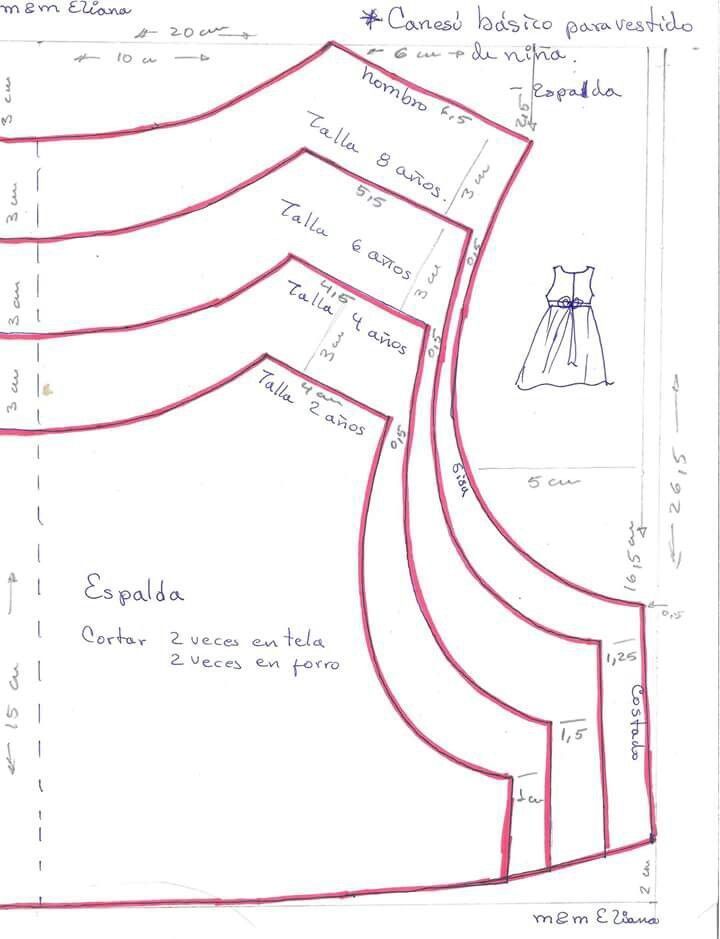 m&m Eliana
* Canesú básico para vestido
de niña.
- Espalda
20 cm
10 cm
6 cm
2,5
3 cm
hombro 6,5
Talla 8 años.
3 cm
3 cm
5,5
Talla 6 años
0,5
3 cm
3 cm
4,5
Talla 4 años
0,5
3 cm
3 cm
4 cm
Talla 2 años
0,5
Sisa
5 cm
26,5
16,5 cm
0,5
Espalda
Cortar 2 veces en tela
2 veces en forro
1,25
Costado
15 cm
1,5
1 cm
2 cm
m&m Eliana